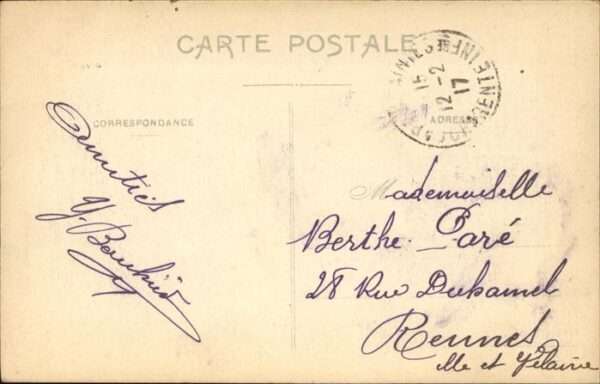 CARTE POSTALE
CORRESPONDANCE
ADRESSE
15
12-2
17
Amitiés
Mademoiselle
Berthe Paré
28 Rue Duhamel
Rennes
Ille et Vilaine